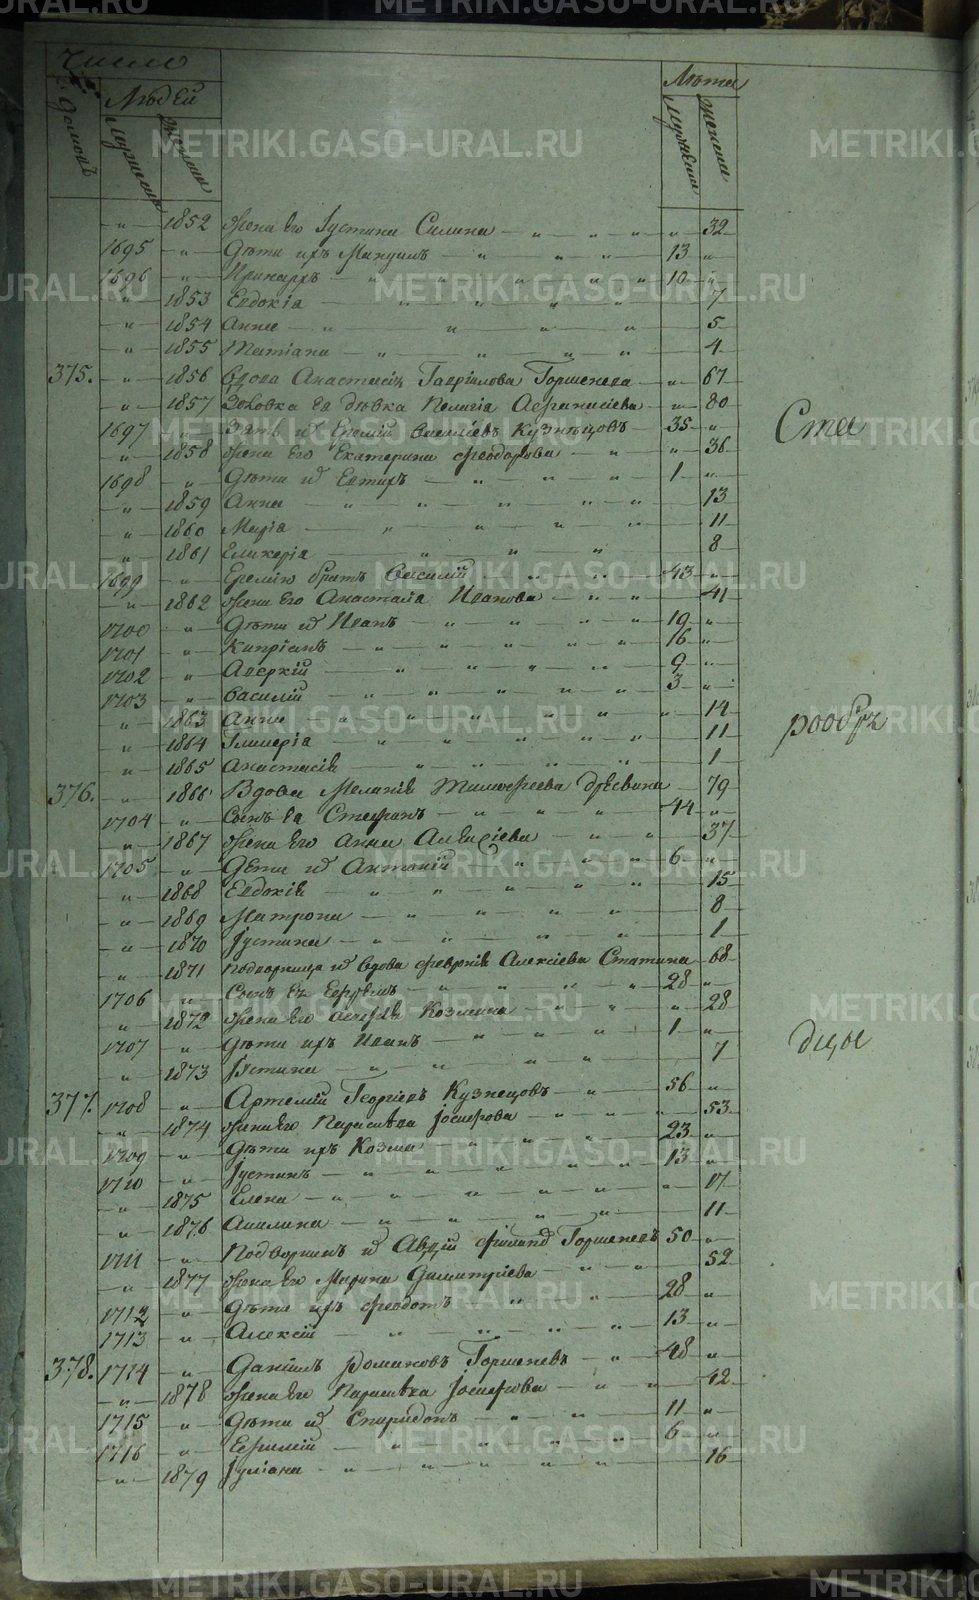 METRIKI.GASO-URAL.RU
Число
Людей
Лѣта
домовъ
мужеска
женска
мужеска
женска
" 1852 жена его Іустина Силина " 32
1695 " Дѣти ихъ Макѵимъ 13 "
1696 " Пинаръ 10 "
" 1853 Евдокіа 7
" 1854 Анна 5
" 1855 Татіана 4
375. " 1856 Вдова Анастасіа Гаврілова Горшенева " 67
" 1857 Золовка ея дѣвка Пелагіа Афанасіева " 80
1697 " Зять и Еремій Васильевъ Кузнецовъ 35 "
" 1858 жена его Екатерина Феодорова " 36
1698 " Дѣти и 1 "
" 1859 Анна 13
" 1860 Маріа 11
" 1861 Гликеріа 8
1699 " Еремію братъ Василій 43 "
" 1862 жена его Анастасіа Иванова 41
1700 " Дѣти и Иванъ 19 "
1701 " Кипріанъ 16 "
1702 " Аверкій 9 "
1703 " Василій 3 "
" 1863 Анна " 14
" 1864 Гликеріа 11
" 1865 Анастасіа 1
376. " 1866 Вдова Меланіа Тимофеева 79
1704 " Сынъ ея Стефанъ 44 "
" 1867 жена его Анна Алексіева 37
1705 " Дѣти и Антоній 6 "
" 1868 Евдокіа 15
" 1869 Матрона 8
" 1870 Іустина 1
" 1871 и вдова Феврніа Алексіева 68
1706 " Сынъ ея Ефремъ 28 "
" 1872 жена его Козмина " 28
1707 " Дѣти ихъ Иванъ 1 "
" 1873 Іустина 7
377. 1708 " Артемій Георгіевъ Кузнецовъ 56 "
" 1874 жена его Параскева Іосифова " 53
1709 " Дѣти ихъ Козма 23 "
1710 " Іустинъ 13 "
" 1875 Елена " 17
" 1876 Акилина " 11
1711 " и Авдій Горшеневъ 50 "
" 1877 жена его Марина Димитріева " 52
1712 " Дѣти ихъ Феодотъ 28 "
1713 " Алексій 13 "
378. 1714 " Даніилъ Романовъ Горшеневъ 48 "
" 1878 жена его Параскева Іосифова " 42
1715 " Дѣти и Спиридонъ 11 "
1716 " Ефимій 6 "
" 1879 Іуліана 16
Ста
рообря
дцы